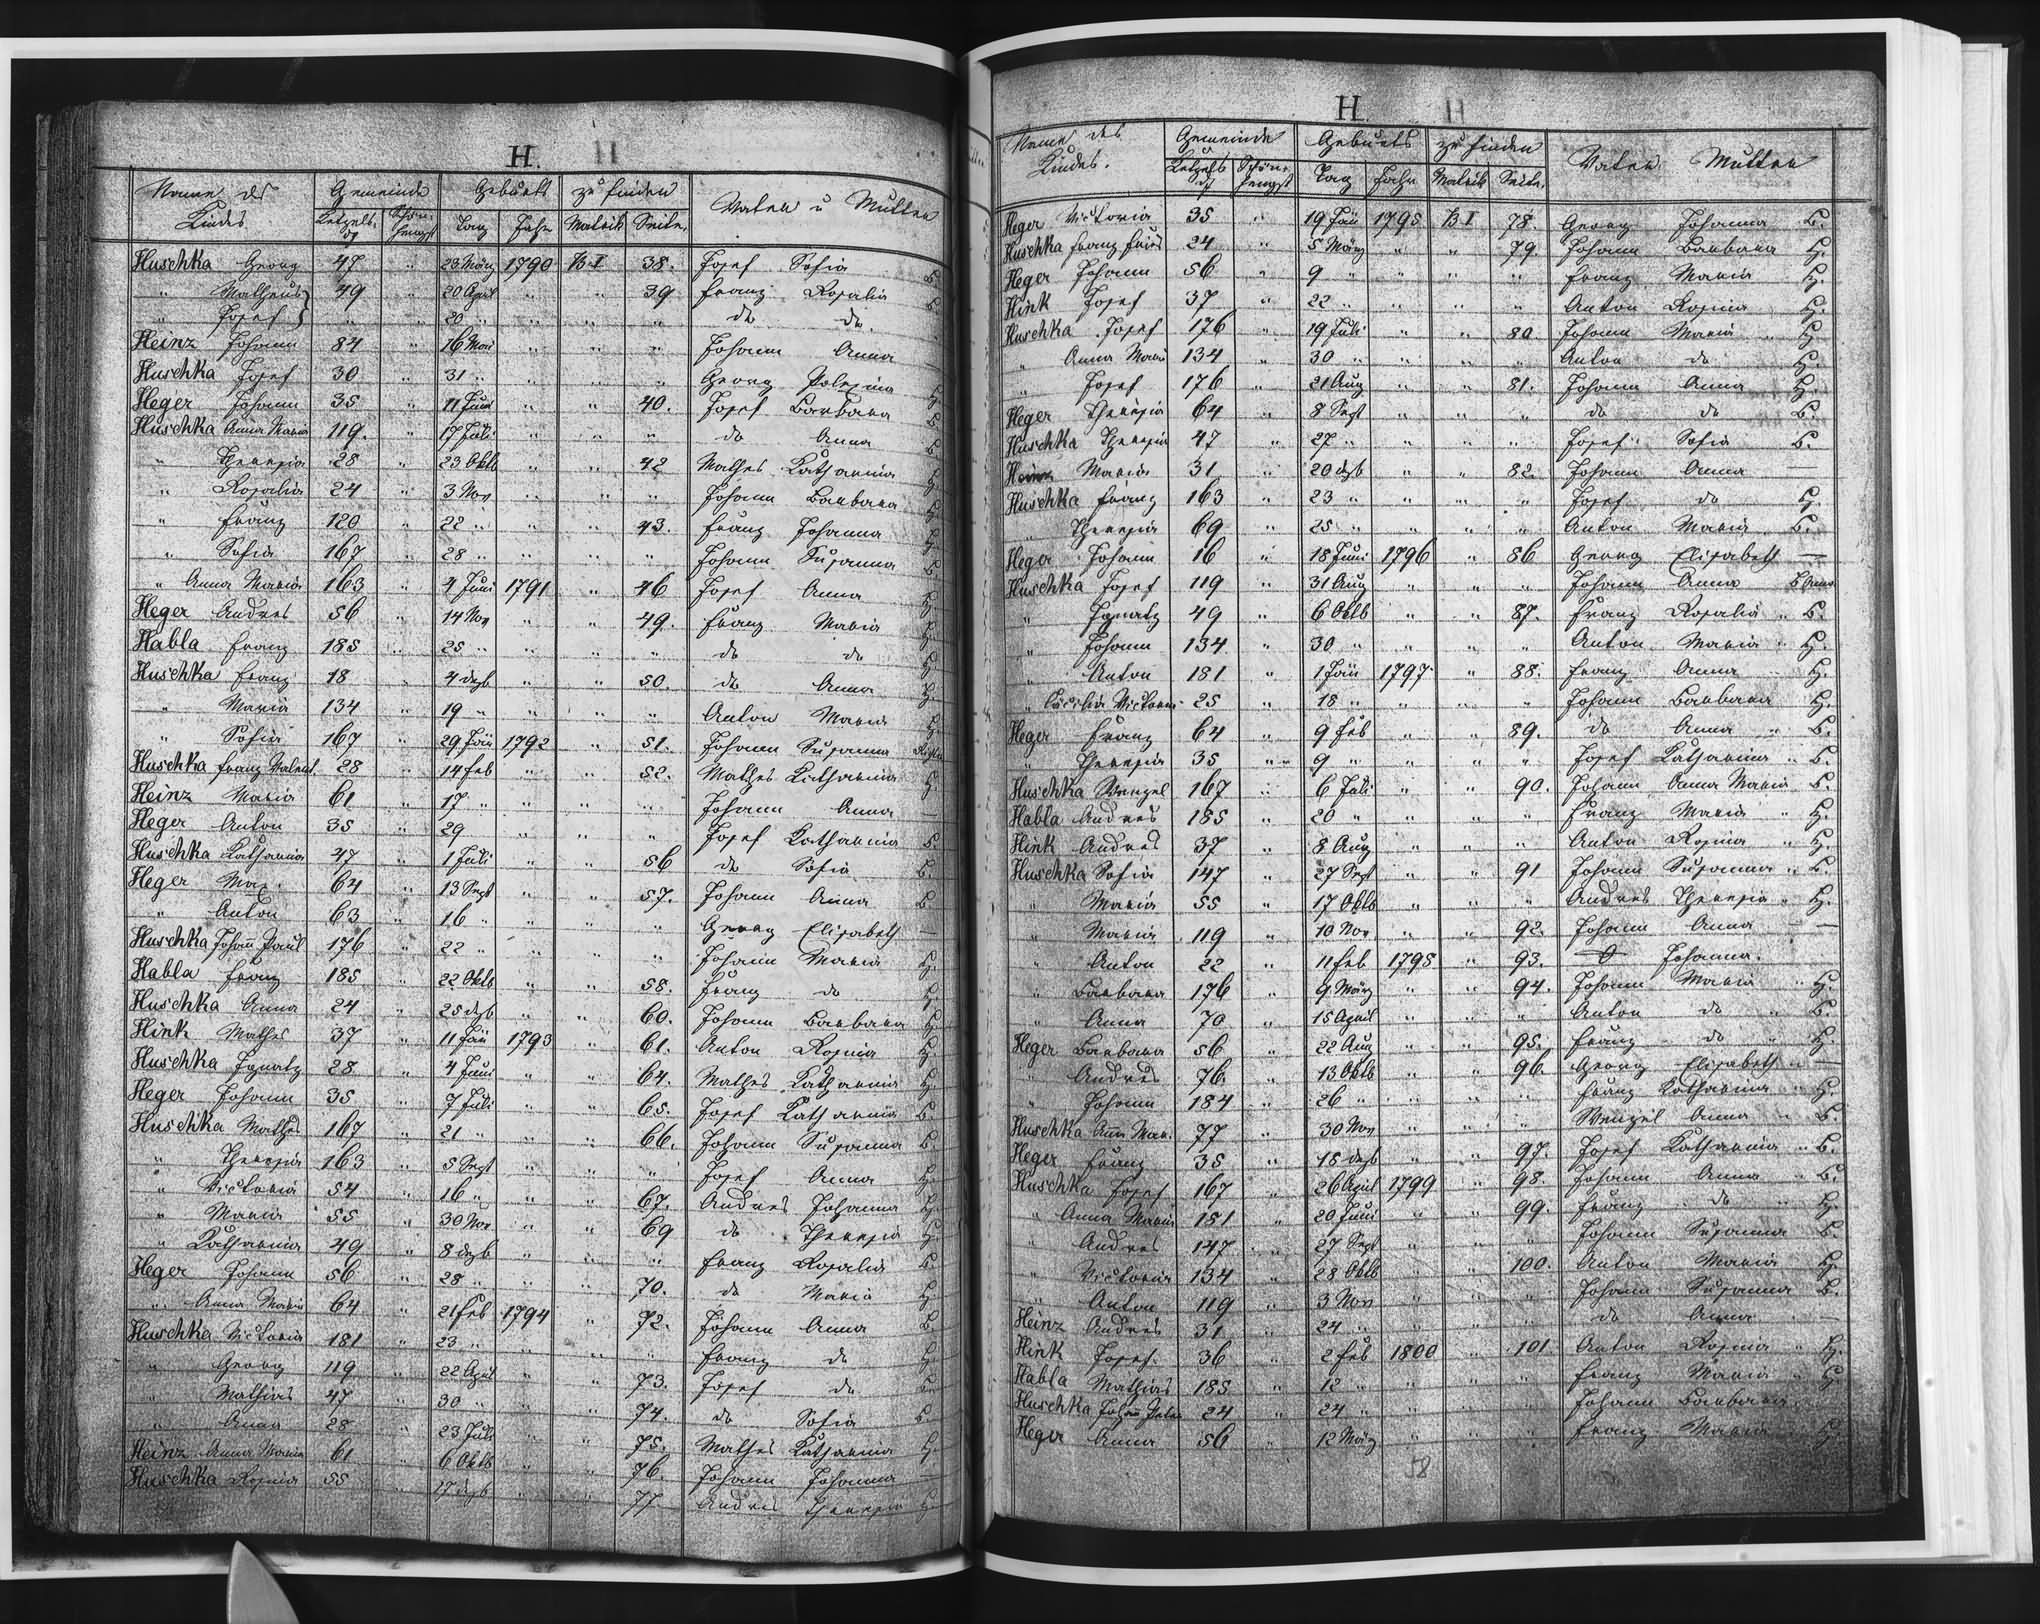 H.
Name des Kindes Gemeinde Geburts zu finden Vater u Mutter
Ketzelsdf Schönhengst Tag Jahr Matrik Seite
Huschka Georg 47 " 23 März 1790 B·I 38. Josef Sofia B.
" Matheus } 49 " 20 April " " 39 Franz Rosalia B.
" Josef } " " 20 " " " " do do.
Heinz Johann 84 " 16 Mai " " " Johann Anna —
Huschka Josef 30 " 31 " " " " Georg H.
Heger Johann 35 " 11 Juni " " 40. Josef Barbara B.
Huschka Anna Maria 119. " 17 Juli " " " do Anna B.
" Theresia 28 " 23 Oktb " " 42 Mathes Katharina H.
" Rosalia 24 " 3 Nov " " " Johann Barbara H.
" Franz 120 " 22 " " " 43. Franz Johanna H.
" Sofia 167 " 28 " " " " Johann Susanna B.
" Anna Maria 163 " 4 Juni 1791 " 46 Josef Anna H.
Heger Andres 56 " 14 Nov " " 49. Franz Maria H.
Habla Franz 185 " 25 " " " " do do H.
Huschka Franz 18 " 4 dezb " " 50. do Anna H.
" Maria 134 " 19 " " " " Anton Maria H.
" Sofia 167 " 29 Jän 1792 " 51. Johann Susanna
Huschka Franz Valent. 28 " 14 feb " " 52. Mathes Katharina H.
Heinz Maria 61 " 17 " " " " Johann Anna —
Heger Anton 35 " 29 " " " Josef Katharina B.
Huschka Katharina 47 " 1 Juli " " 56 do Sofia B.
Heger Max. 64 " 13 Sept " " 57. Johann Anna B.
" Anton 63 " 16 " " " " Georg Elisabeth —
Huschka Johan Paul 176 " 22 " " " " Johann Maria H.
Habla Franz 185 " 22 Oktb " " 58. Franz do H.
Huschka Anna 24 " 25 dezb " " 60. Johann Barbara H.
Hink Mathes 37 " 11 Jän 1793 " 61. Anton Rosina H.
Huschka Ignatz 28 " 4 Juni " " 64. Mathes Katharina H.
Heger Johann 35 " 7 Juli " " 65. Josef Katharina B.
Huschka Mathes 167 " 21 " " " 66. Johann Susanna B.
" Theresia 163 " 5 Sept " " " Josef Anna H.
" Victoria 54 " 16 " " " 67. Andres Johanna H.
" Maria 55 " 30 Nov " " 69 do Theresia H.
" Katharina 49 " 8 dezb " " " Franz Rosalia B.
Heger Johann 56 " 28 " " " 70. do Maria H.
" Anna Maria 64 " 21 feb 1794 " 72. Johann Anna B.
Huschka Victoria 181 " 23 " " " " Franz do H.
" Georg 119 " 22 April " " 73. Josef do B.
" Mathias 47 " 30 " " " 74. do Sofia B.
" Anna 28 " 23 Juli " " 75. Mathes Katharina H.
Heinz Anna Maria 61 " 6 Oktb " " 76. Johann Johanna —
Huschka Rosina 55 " 17 dezb " " 77. Andres Theresia H.
H.
Name des Kindes. Gemeinde Geburts zu finden Vater Mutter
Ketzelsdf Schönhengst Tag Jahr Matrik Seite.
Heger Victoria 35 " 19 Jän 1795 B·I 78. Georg Johanna B.
Huschka Franz 24 " 5 März " " 79. Johann Barbara H.
Heger Johann 56 " 9 " " " " Franz Maria H.
Hink Josef 37 " 22 " " " " Anton Rosina H.
Huschka Josef 176 " 19 Juli " " 80. Johann Maria H.
" Anna Maria 134 " 30 " " " " Anton do H.
" Josef 176 " 21 Aug " " 81. Johann Anna H.
Heger Theresia 64 " 8 Sept " " " do do B.
Huschka Theresia 47 " 27 " " " " Josef Sofia B.
Heinz Maria 31 " 20 dezb " " 82. Johann Anna —
Huschka Franz 163 " 23 " " " " Josef do H.
" Theresia 69 " 25 " " " " Anton Maria B.
Heger Johann 16 " 18 Juni 1796 " 86 Georg Elisabeth —
Huschka Josef 119 " 31 Aug " " " Johann Anna
" Ignatz 49 " 6 Oktb " " 87. Franz Rosalia " B.
" Johann 134 " 30 " " " " Anton Maria " H.
" Anton 181 " 1 Jän 1797 " 88. Franz Anna H.
" Cäcilia Victoria 25 " 18 " " " " Johann Barbara H.
Heger Franz 64 " 9 feb " " 89. do Anna " B.
" Theresia 35 " 9 " " " " Josef Katharina " B.
Huschka Wenzel 167 " 6 Juli " " 90. Johann Anna Maria B.
Habla Andres 185 " 20 " " " " Franz Maria " H.
Hink Andres 37 " 8 Aug " " " Anton Rosina " H.
Huschka Sofia 147 " 27 Sept " " 91 Johann Susanna " B.
" Maria 55 " 17 Oktb " " " Andres Theresia " H.
" Maria 119 " 10 Nov " " 92. Johann Anna —
" Anton 22 " 11 feb 1798 " 93. 0 Johanna.
" Barbara 176 " 9 März " " 94. Johann Maria " H.
" Anna 70 " 15 April " " " Anton do " B.
Heger Barbara 56 " 22 Aug " " 95. Franz do " H.
" Andres 76. " 13 Oktb " " 96 Georg Elisabeth " —
" Johann 184 " 26 " " " " Franz Katharina " H.
Huschka Ann Mar. 77 " 30 Nov " " " Wenzel Anna " B.
Heger Franz 35 " 18 dezb " " 97. Josef Katharina " B.
Huschka Josef 167 " 26 April 1799 " 98. Johann Anna " B.
" Anna Maria 181 " 20 Juni " " 99. Franz do " H.
" Andres 147 " 27 Sept " " " Johann Susanna B.
" Victoria 134 " 28 Oktb " " 100. Anton Maria H.
" Anton 119 " 3 Nov " " " Johann Susanna B.
Heinz Andres 31 " 24 " " " " do Anna " —
Hink Josef. 36 " 2 feb 1800 " 101 Anton Rosina " H.
Habla Mathias 185 " 12 " " " " Franz Maria " H.
Huschka Johan 24 " 24 " " " " Johann Barbara
Heger Anna 56 " 12 März " " " Franz Maria H.
58